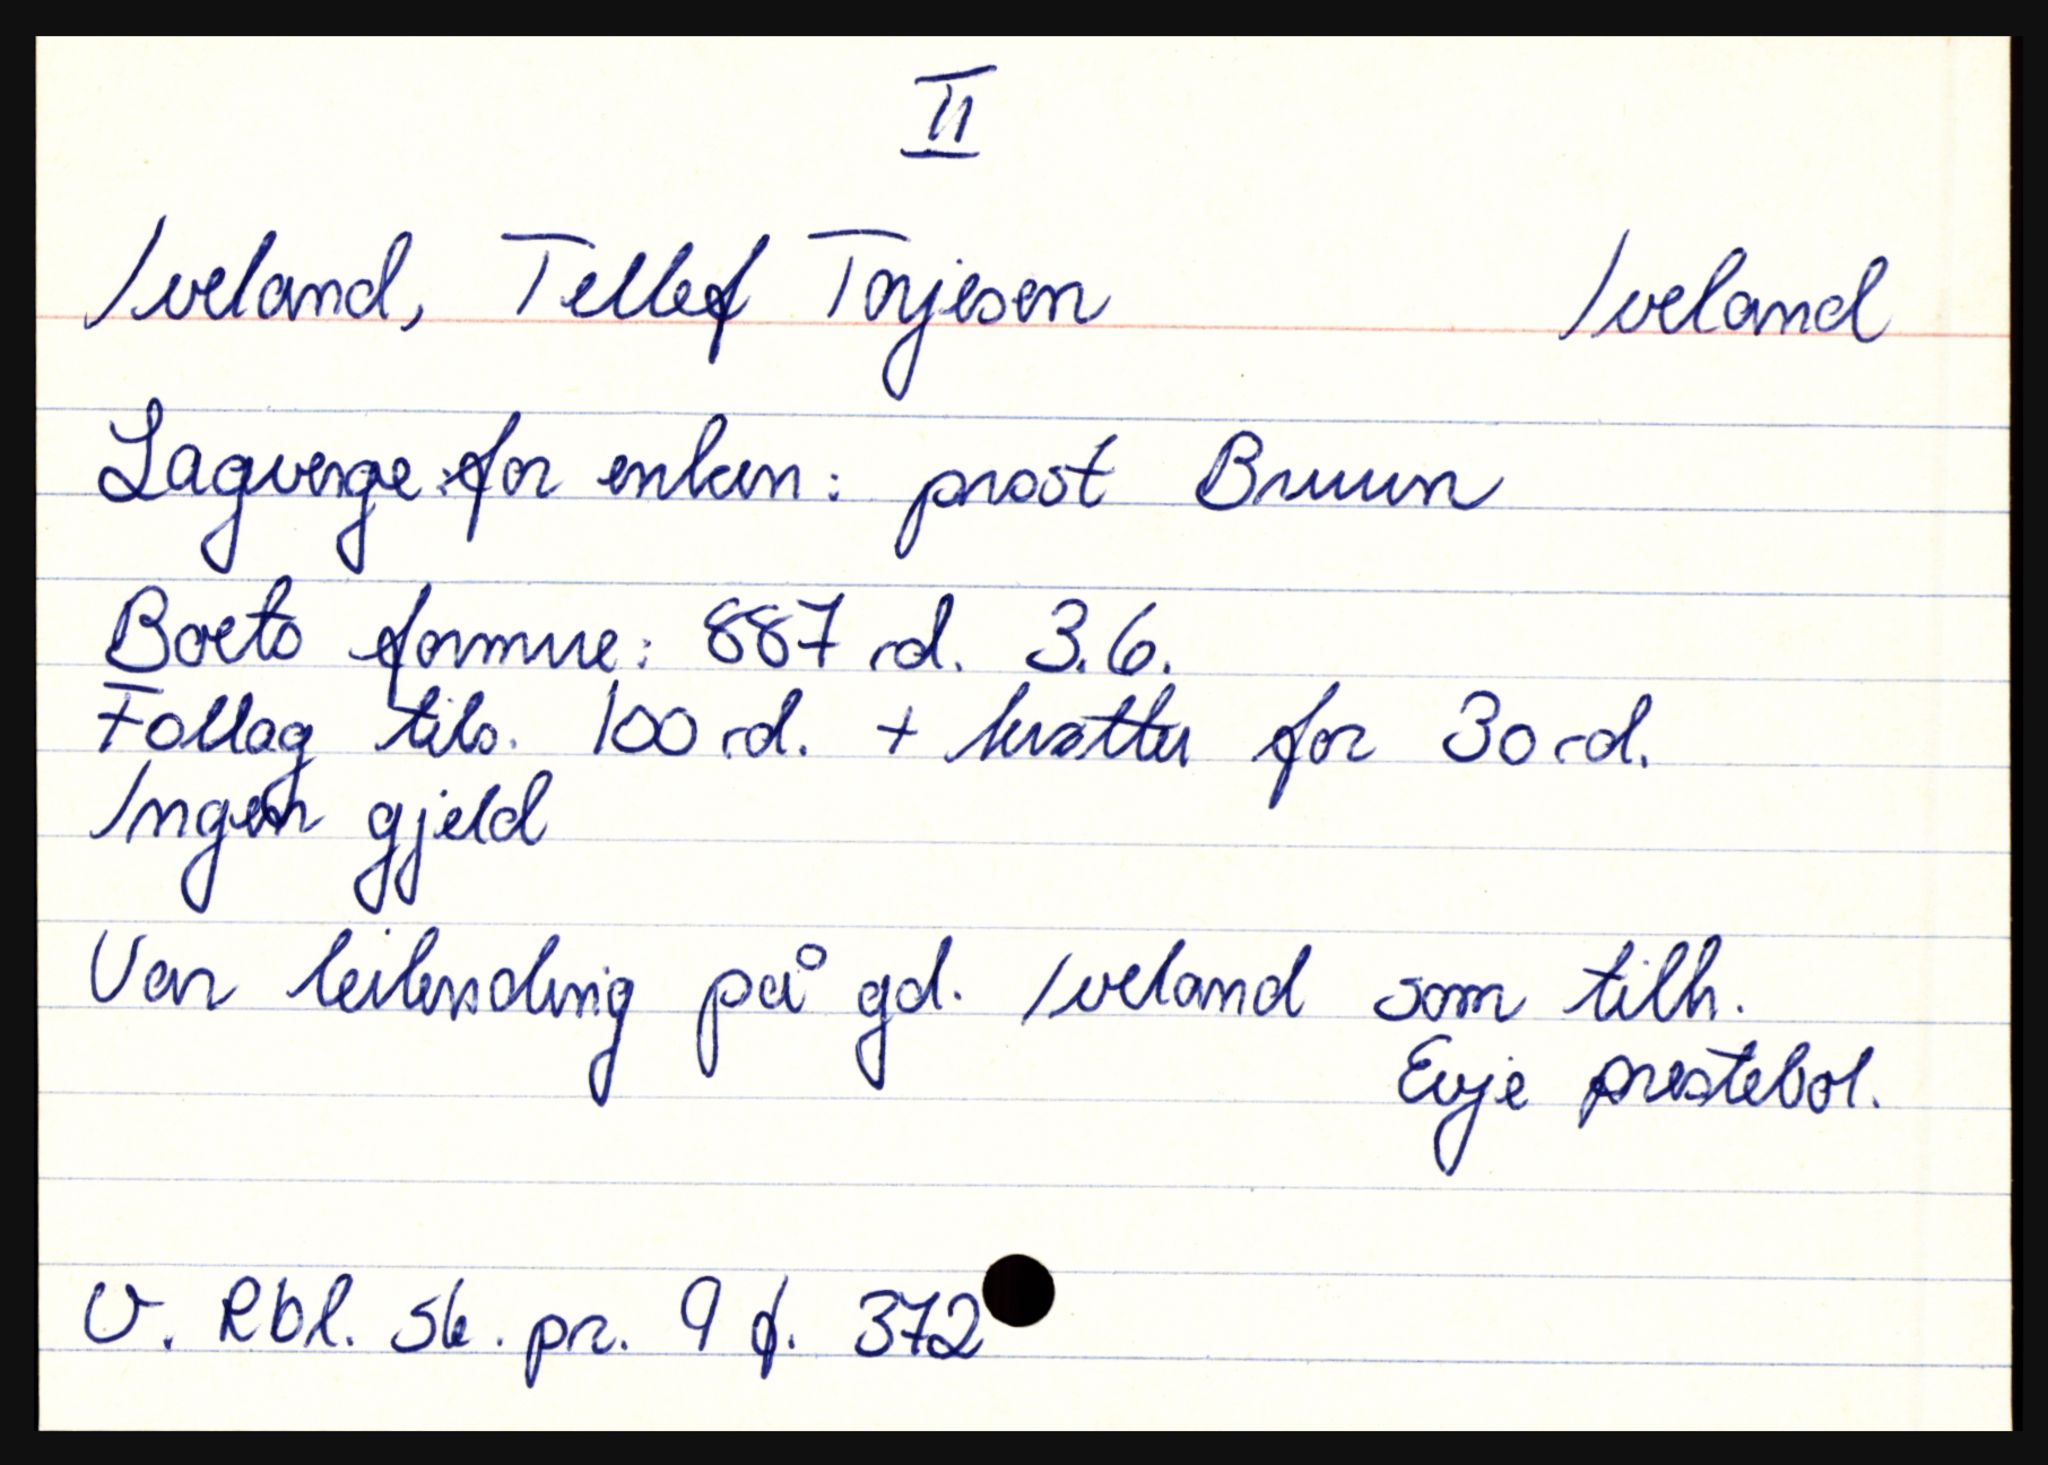 II
Iveland, Tellef Torjesen Iveland
Lagverge for enken: prost Bruun
Boets formue: 887 rd. 3.6.
Follag tils. 100 rd. + for 30 rd.
Ingen gjeld
Var leilending på gd. Iveland som tilh.
Evje prestebol.
V. Rbl. Sk. pr. 9 f. 372